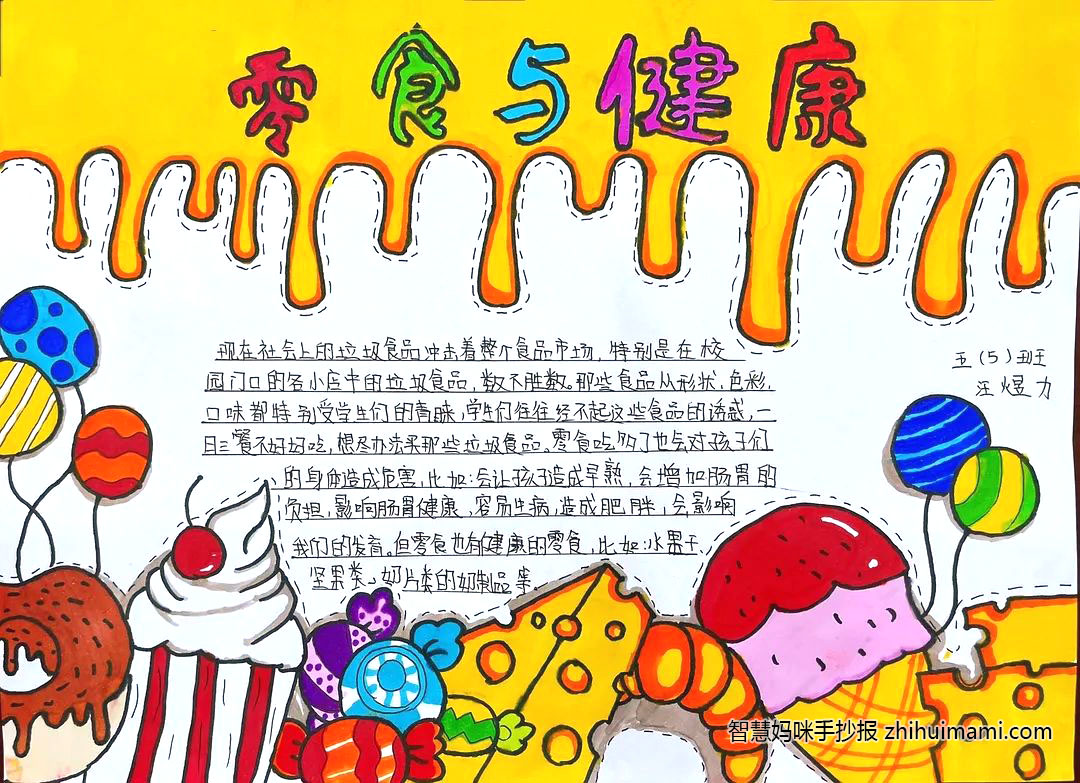 零食与健康
现在社会上的垃圾食品冲击着整个食品市场,特别是在校
园门口的各小店中的垃圾食品,数不胜数。那些食品从形状,色彩,
口味都特别受学生们的青睐,学生们往往经不起这些食品的诱惑,一
日三餐不好好吃,想尽办法买那些垃圾食品。零食吃多了也会对孩子们
的身体造成危害,比如:会让孩子造成早熟,会增加肠胃的
负担,影响肠胃健康,容易生病,造成肥胖,会影响
我们的发育。但零食也有健康的零食,比如:水果干、
坚果类、奶片类的奶制品等
五(5)班
汪煜力
智慧妈咪手抄报 zhihuimami.com